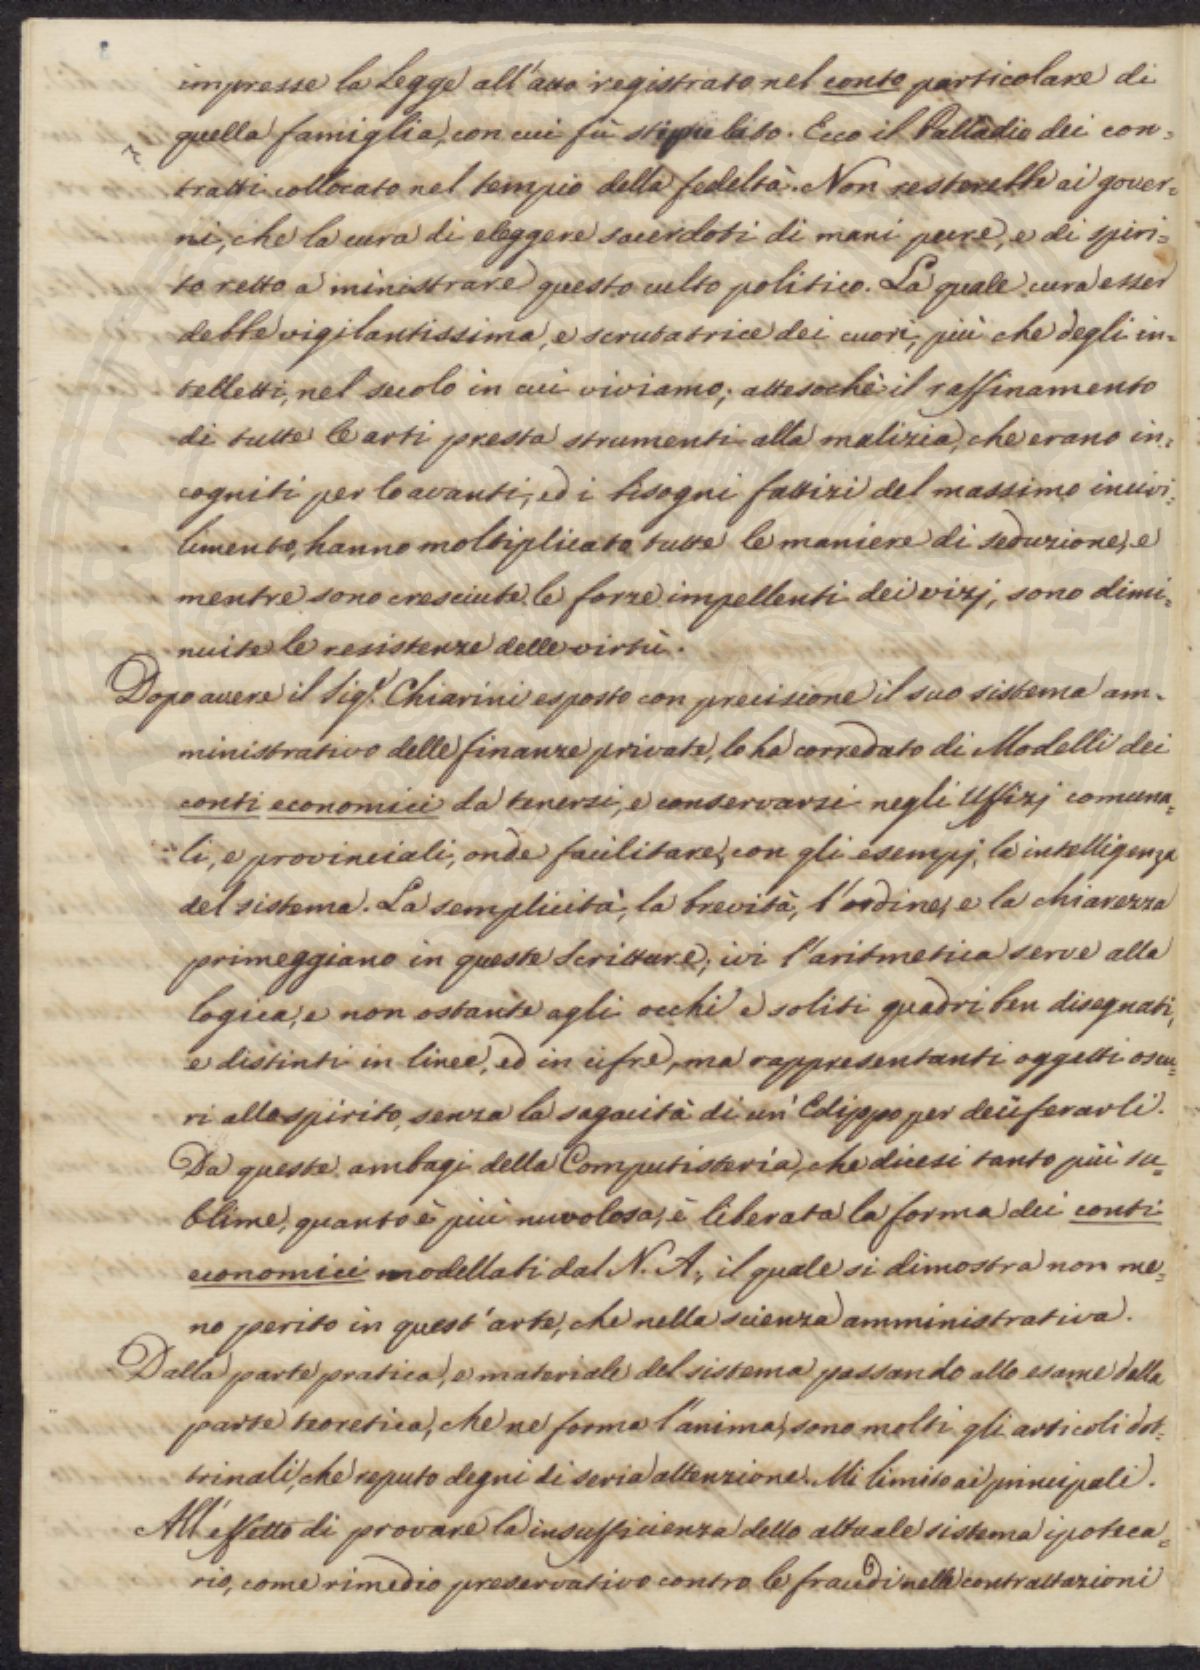 impresse la Legge all'atto registrato nel conto particolare di
quella famiglia, con cui fù stipulato. Ecco il Palladio dei con=
tratti collocato nel tempio della fedeltà. Non resterebbe ai gover=
ni, che la cura di eleggere sacerdoti di mani pure, e di spiri=
to retto a ministrare questo culto politico. La quale cura esser
debbe vigilantissima, e scrutatrice dei cuori, più che degli in=
telletti, nel secolo in cui viviamo; attesochè il raffinamento
di tutte le arti presta strumenti alla malizia, che erano in=
cogniti per lo avanti, ed i bisogni fattizi del massimo incivi=
limento, hanno moltiplicato tutte le maniere di seduzione, e
mentre sono cresciute le forze impellenti dei vizj, sono dimi=
nuite le resistenze delle virtù.
Dopo avere il Sigr. Chiarini esposto con precisione il suo sistema am=
ministrativo delle finanze private, lo ha corredato di Modelli dei
conti economici da tenersi, e conservarsi negli Uffizj comuna=
li, e provinciali, onde facilitare, con gli esempj, la intelligenza
del sistema. La semplicità, la brevità, l'ordine, e la chiarezza
primeggiano in queste Scritture; ivi l'aritmetica serve alla
logica, e non ostante agli occhi e soliti quadri ben disegnati,
e distinti in linee, ed in cifre, ma rappresentanti oggetti oscu=
ri allo spirito, senza la sagacità di un' Edippo per deciferarli.
Da queste ambagi della Computisteria, che dicesi tanto più su=
blime, quanto è più nuvolosa, è liberata la forma dei conti
economici modellati dal N. A., il quale si dimostra non me=
no perito in quest'arte, che nella scienza amministrativa.
Dalla parte pratica, e materiale del sistema passando allo esame della
parte teoretica, che ne forma l'anima, sono molti gli articoli dot=
trinali, che reputo degni di seria attenzione. Mi limito ai principali.
All'effetto di provare la insufficienza dello attuale sistema ipoteca=
rio, come rimedio preservativo contro le fraudi nelle contrattazioni